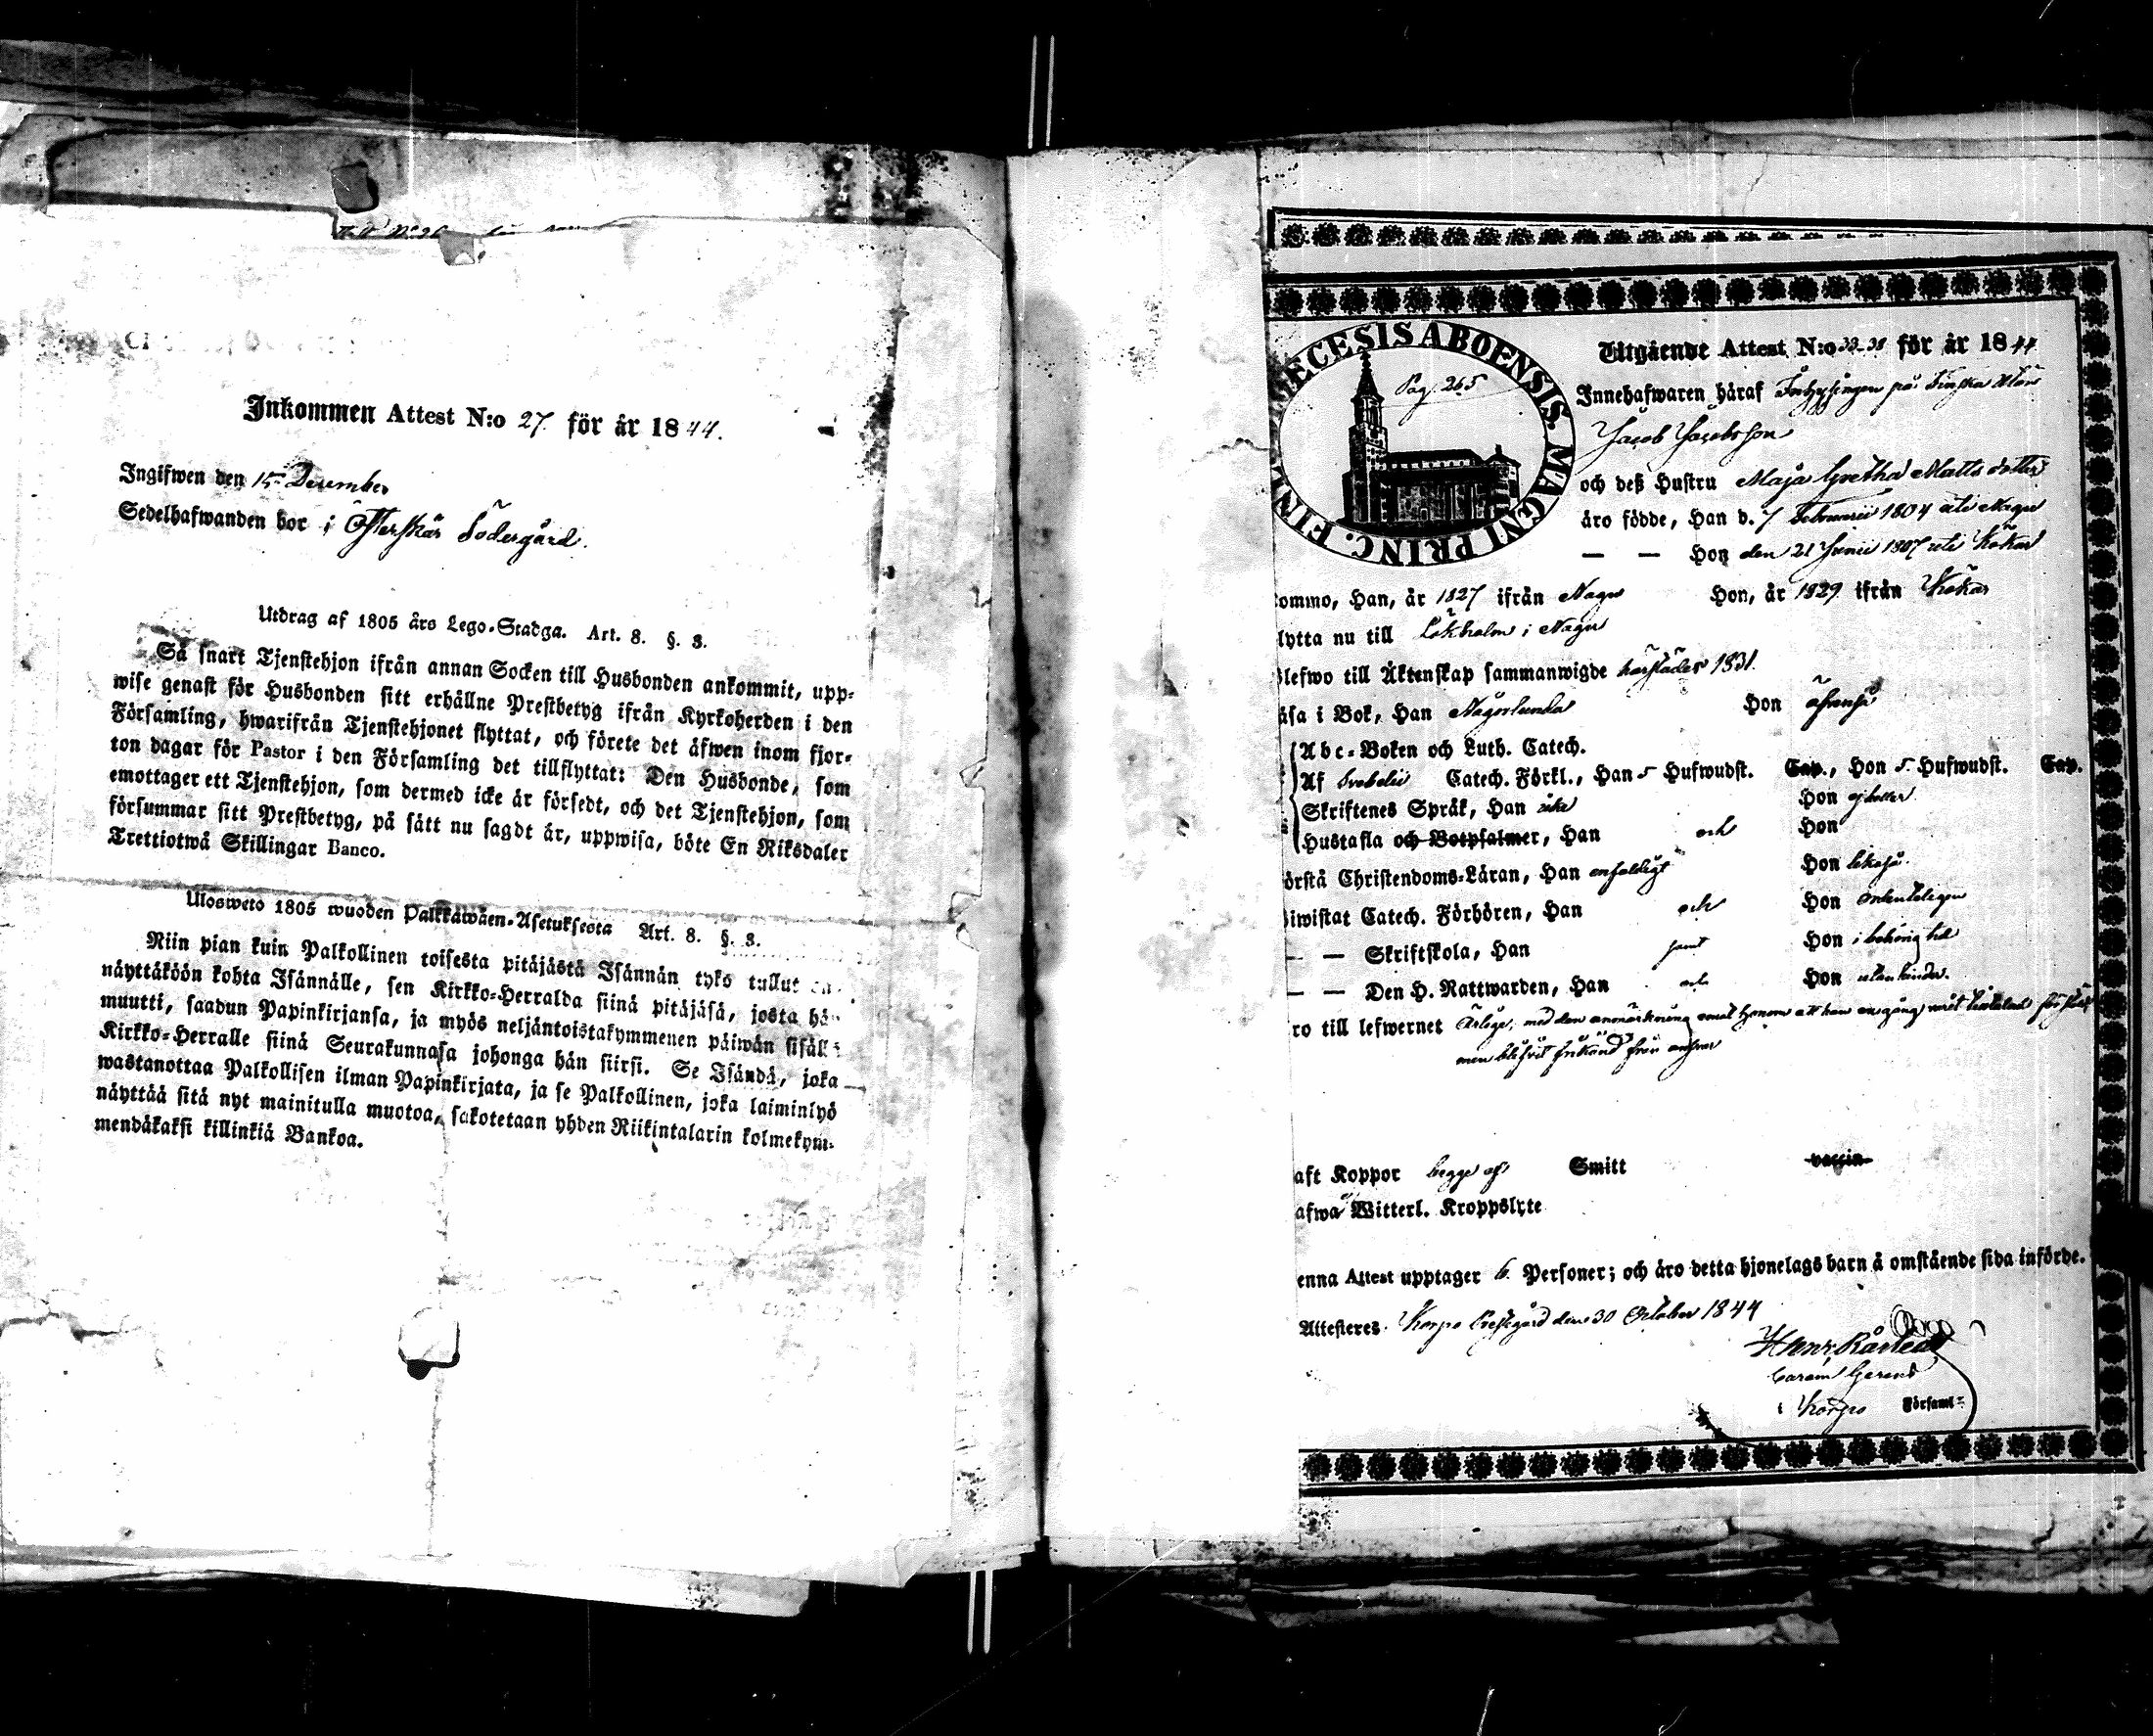 Inkommen Attest N:o 27. för år 1844.
Ingifwen den 15 December
Sedelhafwanden bor i Österskär Södergård.
Utdrag af 1805 års Lego-Stadga. Art. 8. §. 3.
Så snart Tjenstehjon ifrån annan Socken till Husbonden ankommit, upp-
wise genast för Husbonden sitt erhållne Prestbetyg ifrån Kyrkoherden i den
Församling, hwarifrån Tjenstehjonet flyttat, och förete det äfwen inom fjor-
ton dagar för Pastor i den Församling det tillflyttat: Den Husbonde, som
emottager ett Tjenstehjon, som dermed icke är försedt, och det Tjenstehjon, som
försummar sitt Prestbetyg, på sätt nu sagdt är, uppwisa, böte En Riksdaler
Trettiotwå Skillingar Banco.
Ulosweto 1805 wuoden Palkkawäen-Asetuksesta Art. 8. §. 3.
Niin pian kuin Palkollinen toisesta pitäjästä Isännän tykö tullut on,
näyttäköön kohta Isännälle, sen Kirkko-Herralda siinä pitäjäsä, josta hän
muutti, saadun Papinkirjansa, ja myös neljäntoistakymmenen päiwän sisällä
Kirkko-Herralle siinä Seurakunnasa johonga hän siirsi. Se Isändä, joka
wastanottaa Palkollisen ilman Papinkirjata, ja se Palkollinen, joka laiminlyö
näyttää sitä nyt mainitulla muotoa, sakotetaan yhden Riikintalarin kolmekym-
mendäkaksi killinkiä Bankoa.
ECESIS ABOENSIS. MAGNI PRINC. FIN
Pag. 265
Utgående Attest N:o för år 1844
Innehafwaren häraf Inhysingen på Finska
Jacob Jacobsson
och deß Hustru Maja Gretha Matts dotter
äro födde, Han d. 7 Februarii 1804 uti Nagu
— — Hon den 21 Junii 1807 uti Kökar
ommo, Han, år 1827 ifrån Nagu Hon, år 1829 ifrån Kökar
lytta nu till Lökholm i Nagu
lefwo till Äktenskap sammanwigde härstädes 1831.
äsa i Bok, Han Någorlunda Hon äfwenså
Abc-Boken och Luth. Catech.
Af Svebelii Catech. Förkl., Han 5 Hufwudst. Cap., Hon 5 Hufwudst. Cap.
Skriftenes Språk, Han icke Hon ej heller
Hustafla och Botpsalmer, Han och Hon
örstå Christendoms-Läran, Han enfaldigt Hon likaså.
iwistat Catech. Förhören, Han och Hon ordenteligen
— — Skriftskola, Han samt Hon i behörig tid
— — Den H. Nattwarden, Han och Hon utan hinder.
ro till lefwernet Ärlige, med den anmärkning emot honom att han en gång
men blifvit frikänd från answar
aft Koppor begge af Smitt vaccin
afwa Witterl. Kroppslyte
enna Attest upptager 6 Personer; och äro detta hjonelags barn å omstående sida införde.
Attesteres Korpo Prestgård den 30 October 1844
Henr.
i Korpo Församl: